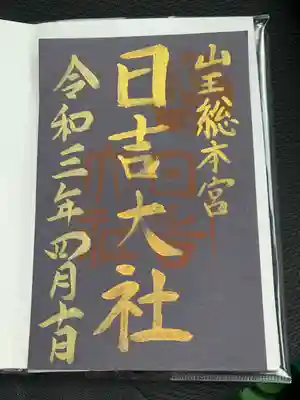 山王総本宮
日吉大社
令和三年四月十日